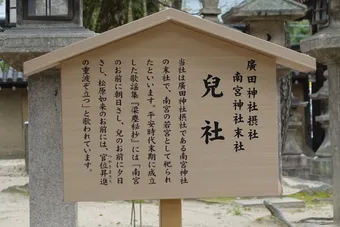 廣田神社摂社
南宮神社末社
兒社
当社は廣田神社摂社である南宮神社
の末社で、南宮の若宮として祀られ
たといいます。平安時代末期に成立
した歌謡集『梁塵秘抄』には「南宮
のお前に朝日さし、兒のお前に夕日
さし、松原如来のお前には、官位昇進
の重波ぞ立つ」と歌われています。